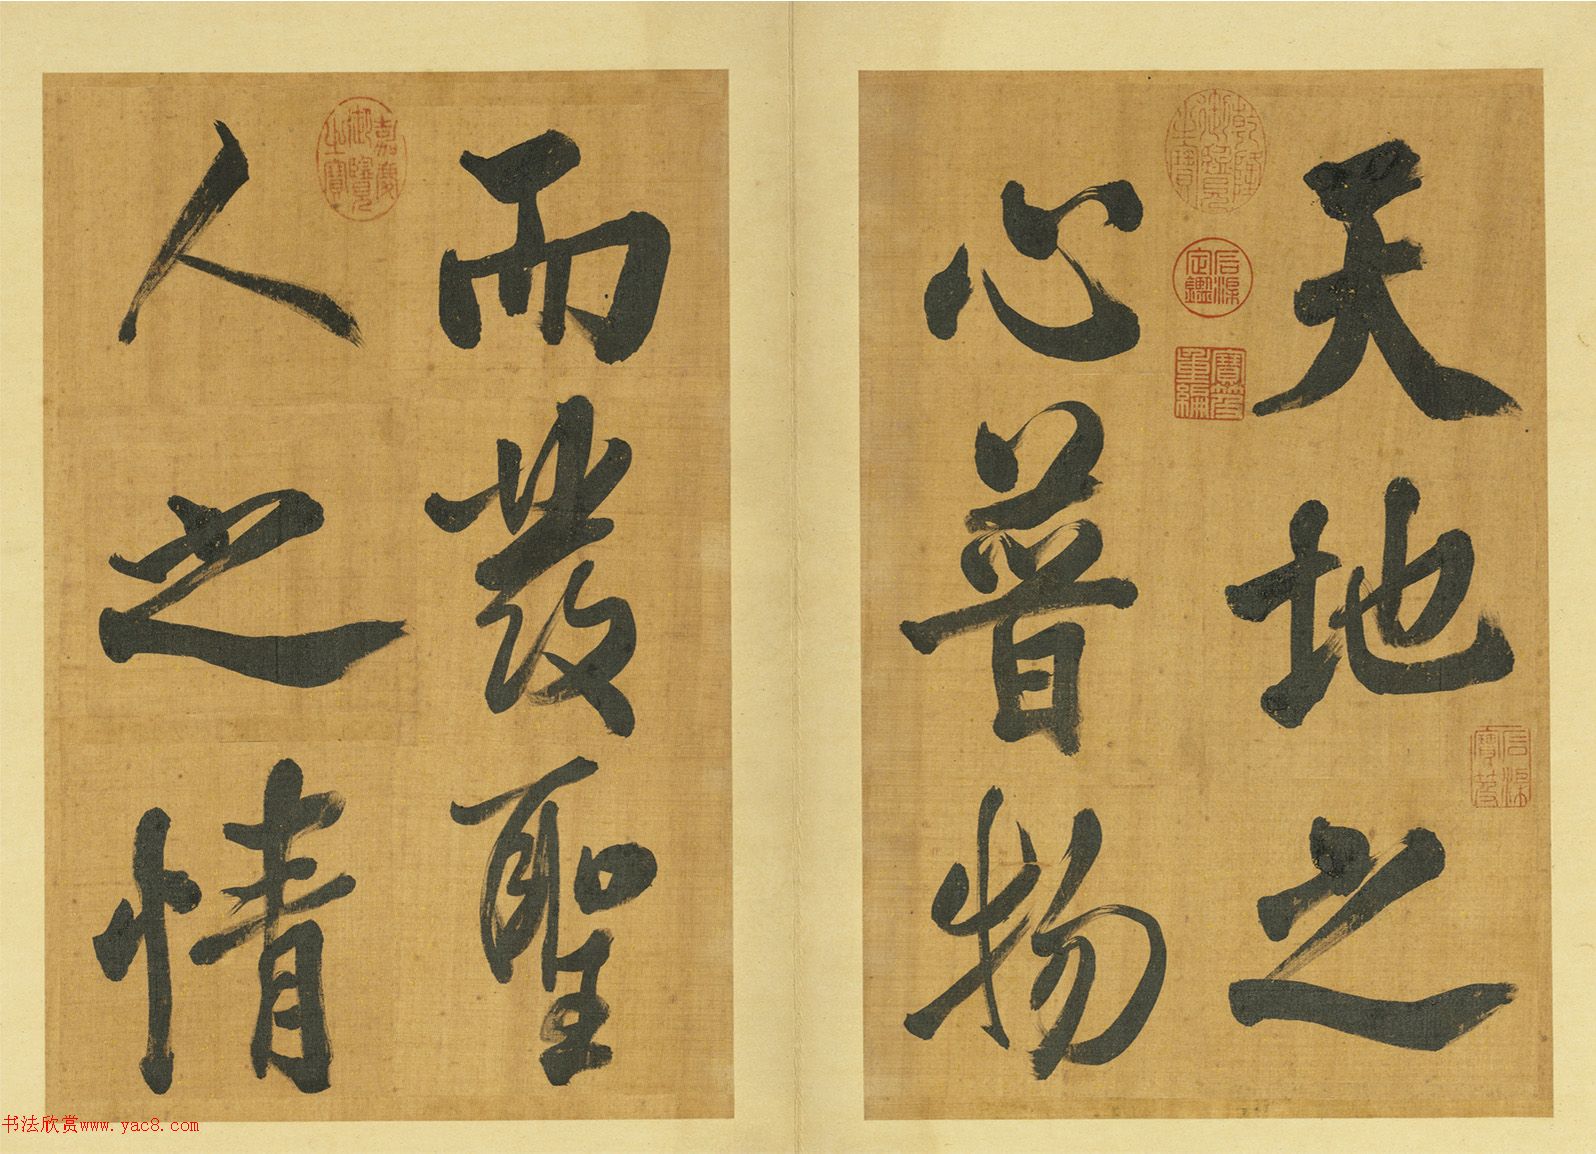 天地之
心普物
而發聖
人之情
乾隆御覽之寶
石渠定鑑
寶笈重編
石渠寶笈
嘉慶御覽之寶
书法欣赏www.yac8.com